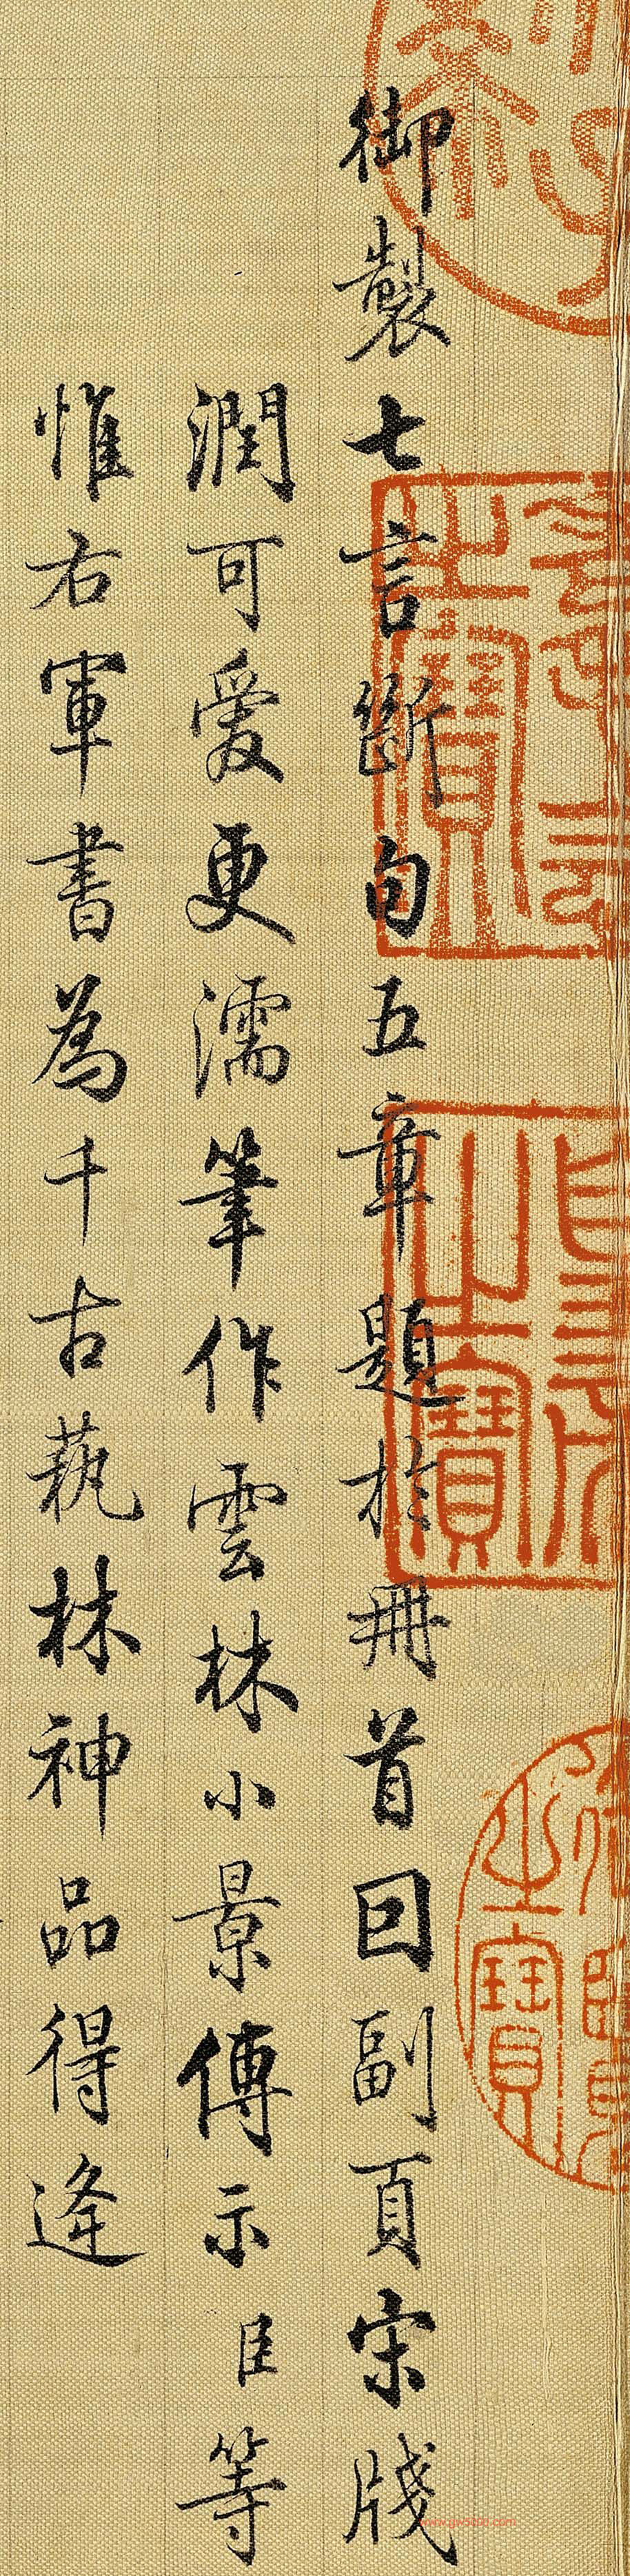 御製七言斷句五章題於冊首因副頁宋牋
潤可愛更濡筆作雲林小景傳示臣等
惟右軍書為千古執林神品得逢
之寶
之寶
之寶